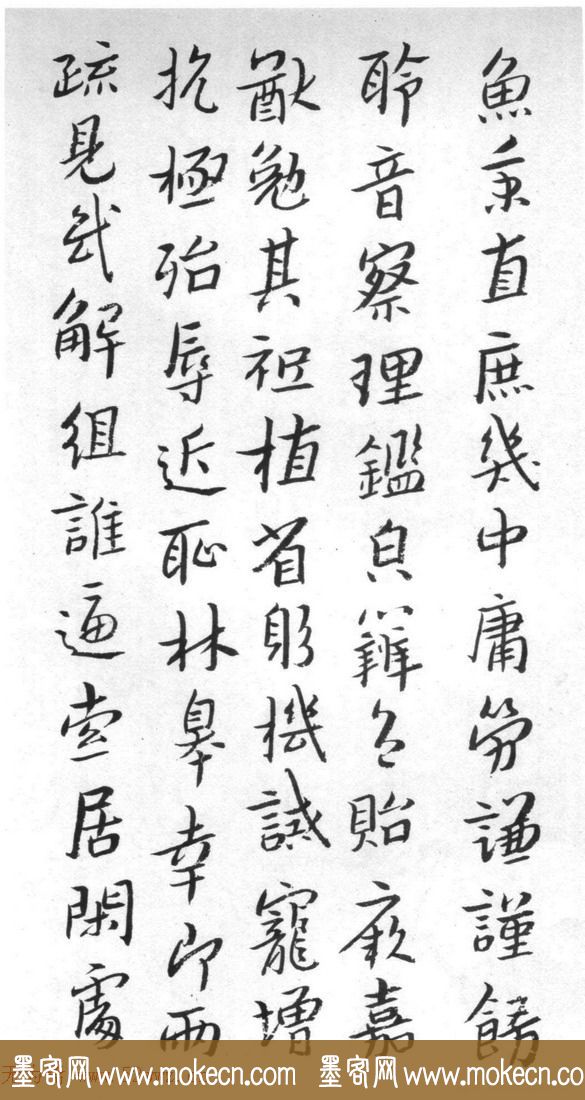 魚秉直庶幾中庸勞謙謹飭
聆音察理鑑皃辯色貽厥嘉
猷勉其祗植省躬機誡寵增
抗極殆辱近恥林皋幸即兩
疏見機解組誰逼索居閑處
墨客网 www.mokecn.com 墨客网 www.mokecn.com